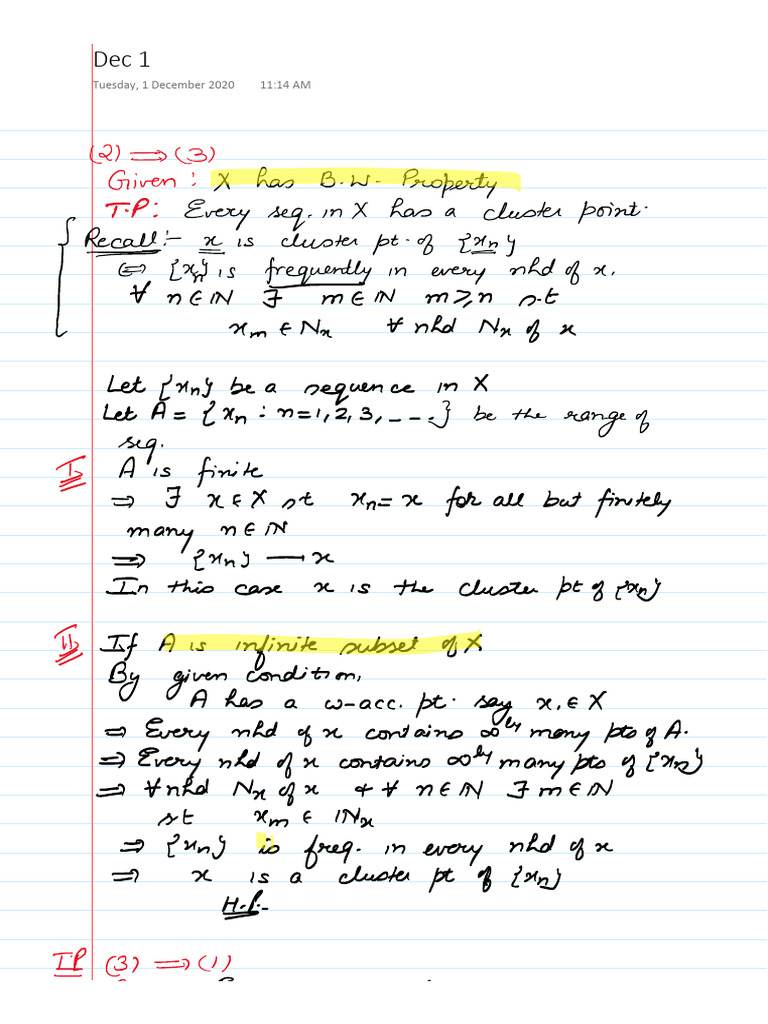 Dec 1
Tuesday, 1 December 2020 11:14 AM
(2) ⟹ (3)
Given: X has B.W. Property
T.P: Every seq. in X has a cluster point.
Recall:- x is cluster pt. of {xn}
⇔ {xn} is frequently in every nhd of x.
∀ n∈IN ∃ m∈IN m⩾n s.t
xm ∈ Nx ∀ nhd Nx of x
Let {xn} be a sequence in X
Let A = {xn : n=1,2,3,----} be the range of
seq.
I, A is finite
⇒ ∃ x∈X s.t xn = x for all but finitely
many n∈IN
⟹ {xn} ⟶ x
In this case x is the cluster pt of {xn}
II, If A is infinite subset of X
By given condition,
A has a ω-acc. pt. say x. ∈ X
⇒ Every nhd of x contains ∞ly many pts of A.
⇒ Every nhd of x contains ∞ly many pts of {xn}
⇒ ∀ nhd Nx of x & ∀ n∈IN ∃ m∈IN
st xm ∈ INx
⇒ {xn} is freq. in every nhd of x
⇒ x is a cluster pt of {xn}
H.P.-
T.P (3) ⟹ (1)